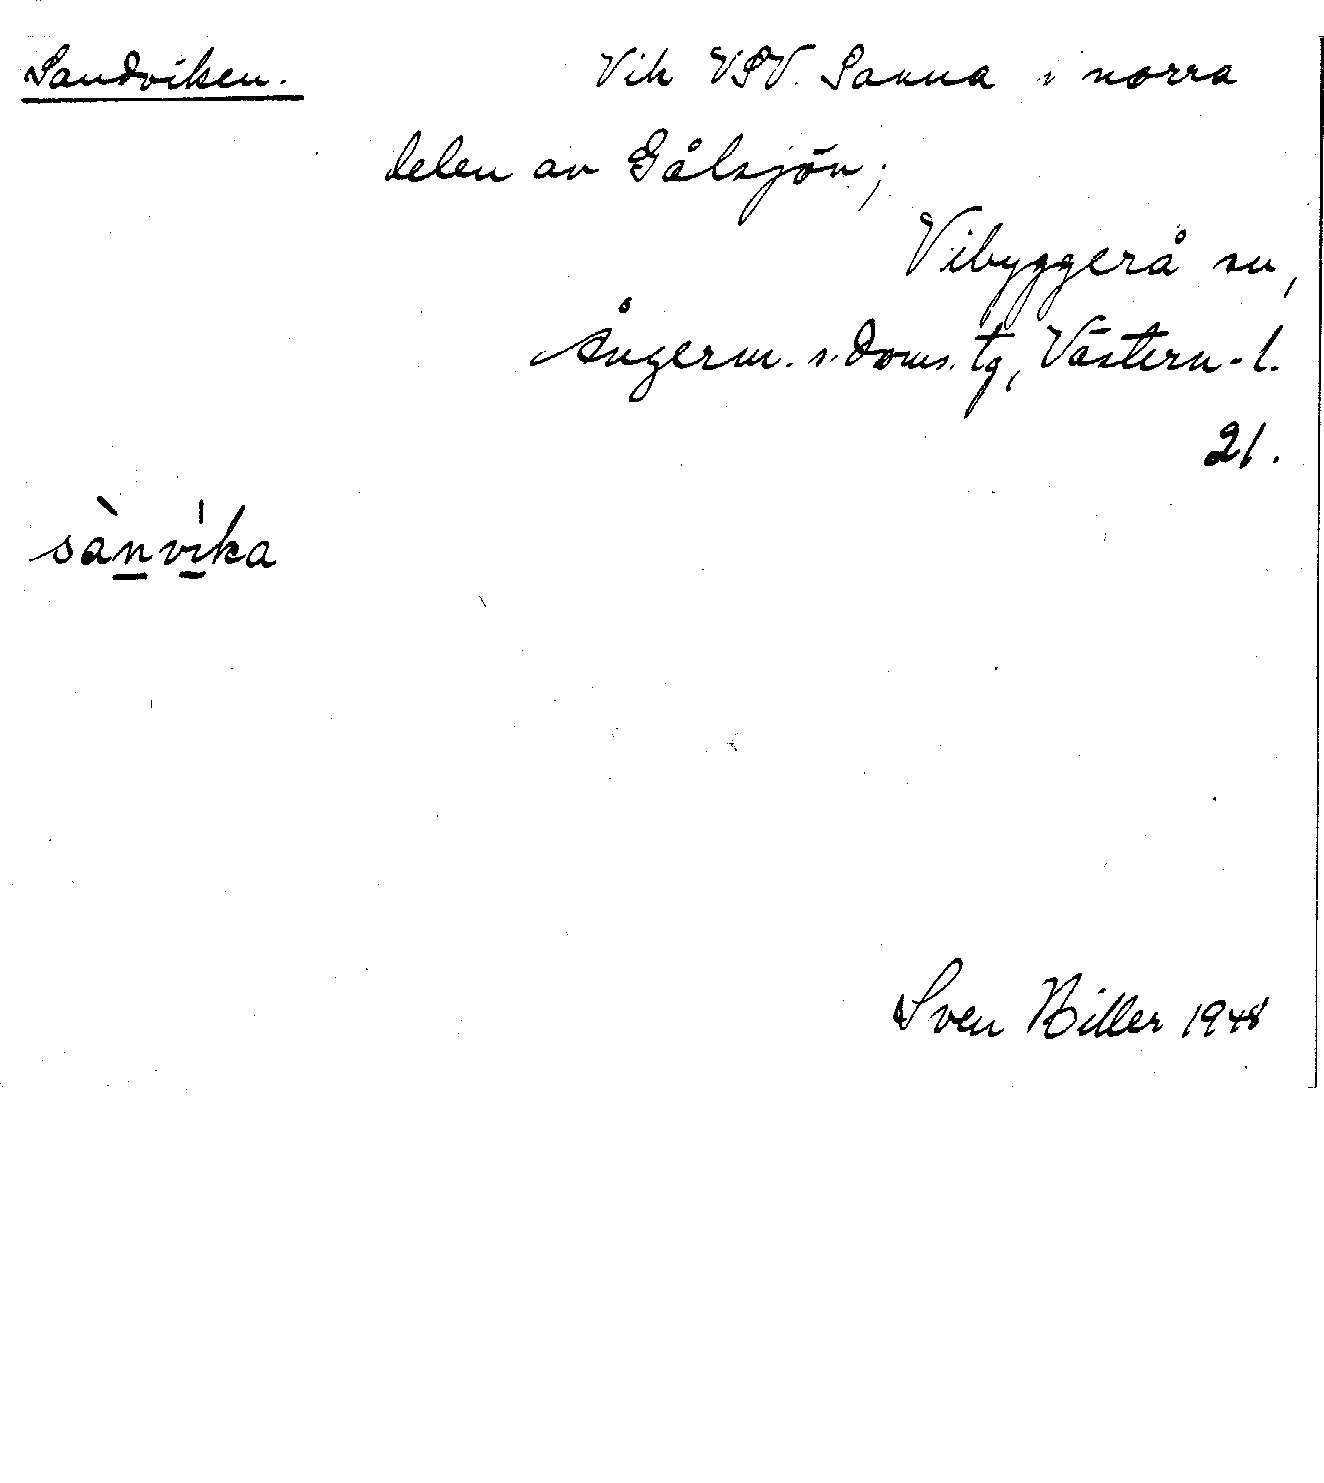 Sandviken. Vik VSV. Sanna i norra
delen av Gålsjön;
Vibyggerå sn,
Ångerm. s. doms. tg, Västern.-l.
21.
sànvika
Sven Biller 1948